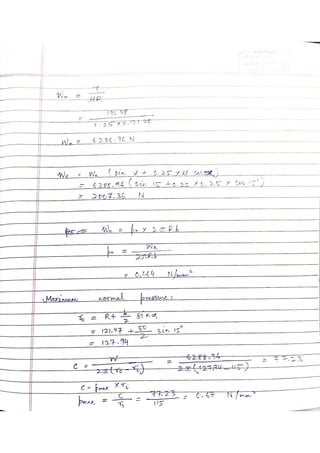 Wn = T
μR
= 191.98
0.25 × 0.12147
Wn = 6288.96 N
We = Wn (sin α + 0.25 × μ cos α)
= 6288.96 (sin 15 + 0.25 × 0.25 × cos 15°)
= 2007.36 N
Wn = pn × 2πRb
pn = Wn
2πRb
= 0.164 N/mm²
Maximum normal pressure:
r₀ = R + b/2 sin α
= 121.47 + 50/2 sin 15°
= 127.94
C = W / 2π(r₀ - ri) = 6288.96 / 2π(127.94 - 115) = 77.23
C = pmax × ri
pmax = C / ri = 77.23 / 115 = 0.67 N/mm²